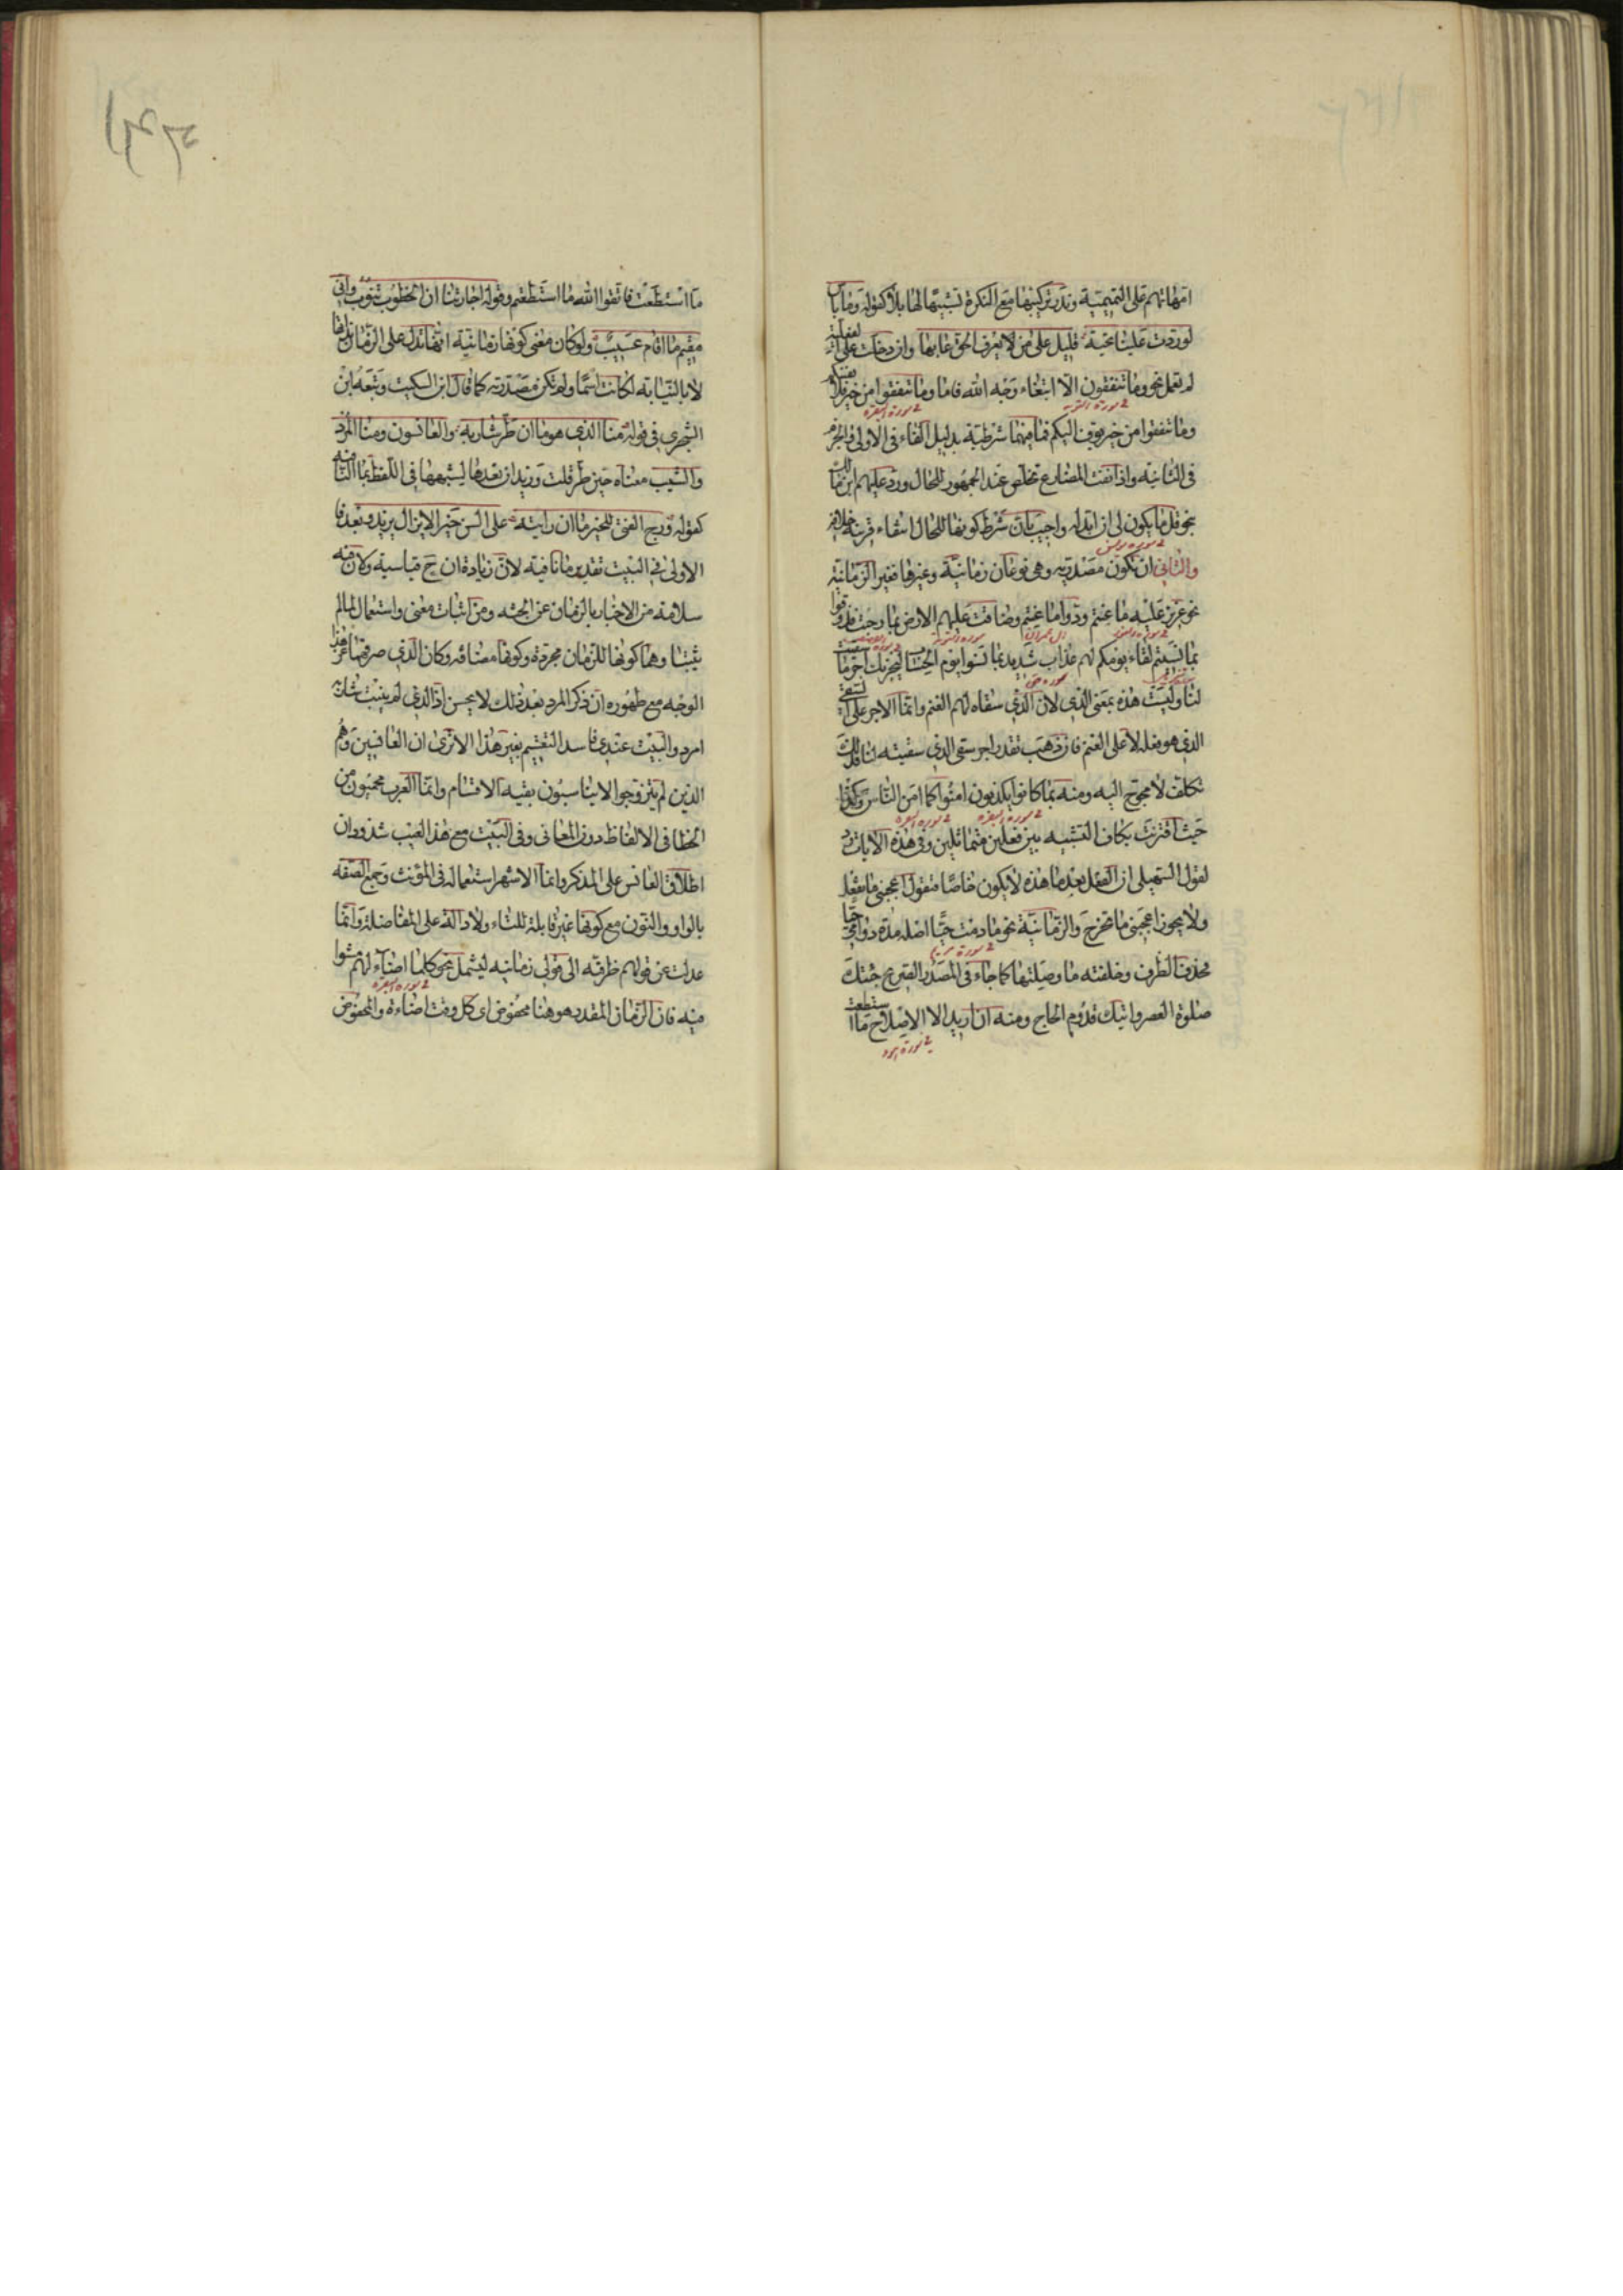 امهاتهم على التميمية وندر تركيبها مع النكرة تشبيها لها بلا كقوله وما باس
لو ردت علينا تحية قليل على من لا يعرف الحق عابها وان دخلت على الفعلية
لم تعمل نحو وما تنفقون الا ابتغاء وجه الله فاما وما تنفقوا من خير فلانفسكم
في سورة البقرة
وما تنفقوا من خير يوف اليكم فما فيهما شرطية بدليل الفاء في الاولى والجزم
في الثانية واذا نفت المضارع تخلص عند الجمهور للحال ورد عليهم ابن مالك
بنحو قل ما يكون لي ان ابدله واجيب بان شرط كونها للحال انتفاء قرينة خلافه
في سورة يونس
والثاني ان تكون مصدرية وهي نوعان زمانية وغيرها فغير الزمانية
نحو عزيز عليه ما عنتم ودوا ما عنتم وضاقت عليهم الارض بما رحبت فذوقوا
في سورة التوبة آل عمران سورة التوبة
بما نسيتم لقاء يومكم لهم عذاب شديد بما نسوا يوم الحساب ليجزيك اجر ما سقيت
سورة ص
لنا وليست هذه بمعنى الذي لان الذي سقاه لهم الغنم وانما الاجر على السقي
الذي هو فعله لا على الغنم فان ذهبت تقدر اجر سقي الذي سقيته لنا فذلك
تكلف لا محوج اليه ومنه بما كانوا يكذبون امنوا كما امن الناس وكذا
في سورة البقرة في سورة البقرة
حيث اقترنت بكاف التشبيه بين فعلين متماثلين وفي هذه الايات رد
لقول السهيلي ان الفعل بعد ما هذه لا يكون خاصا فتقول اعجبني ما تفعل
ولا يجوز اعجبني ما تخرج والزمانية نحو ما دمت حيا اصله مدة دوامي حيا
في سورة مريم
فحذف الظرف وخلفته ما وصلتها كما جاء في المصدر الصريح جئتك
صلوة العصر واتيك قدوم الحاج ومنه ان اريد الا الاصلاح ما استطعت
في سورة هود
ما استطعت فاتقوا الله ما استطعتم وقوله اجارتنا ان الخطوب تنوب واني
مقيم ما اقام عسيب ولو كان معنى كونها زمانية انها تدل على الزمان بذاتها
لا بالنيابة لكانت اسما ولم تكن مصدرية كما قال ابن السكيت وتبعه ابن
الشجري في قوله منا الذي هو ما ان طر شاربه والعانسون ومنا المرد
والشيب معناه حين طر قلت وزيد ان بعدها لشبهها في اللفظ بما النافية
كقوله ورج الفتى للخير ما ان رايته على السن خيرا لا يزال يزيد وبعد فا
الاولى في البيت تقدير ما نافية لان زيادة ان ح قياسية ولان فيه
سلامة من الاخبار بالزمان عن الجثة ومن اثبات معنى واستعمال لما لم
يثبتا وهما كونها للزمان مجردة وكونها مضافة وكان الذي صرفهما عن هذا
الوجه مع ظهوره ان ذكر المرد بعد ذلك لا يحسن اذ الذي لم ينبت شاربه
امرد والبيت عندي فاسد التقسيم بغير هذا الا ترى ان العانسين وهم
الذين لم يتزوجوا لا يناسبون بقية الاقسام وانما العرب محميون من
الخطا في الالفاظ دون المعاني وفي البيت مع هذا العيب شذوذان
اطلاق العانس على المذكر وانما الاشهر استعماله في المؤنث وجمع الصفة
بالواو والنون مع كونها غير قابلة للتاء ولا دالة على المفاضلة وانما
عدلت عن قولهم ظرفية الى قولي زمانية ليشمل نحو كلما اضاء لهم مشوا
في سورة البقرة
فيه فان الزمان المقدر هو هنا مخفوض اي كل وقت اضاءة والمخفوض